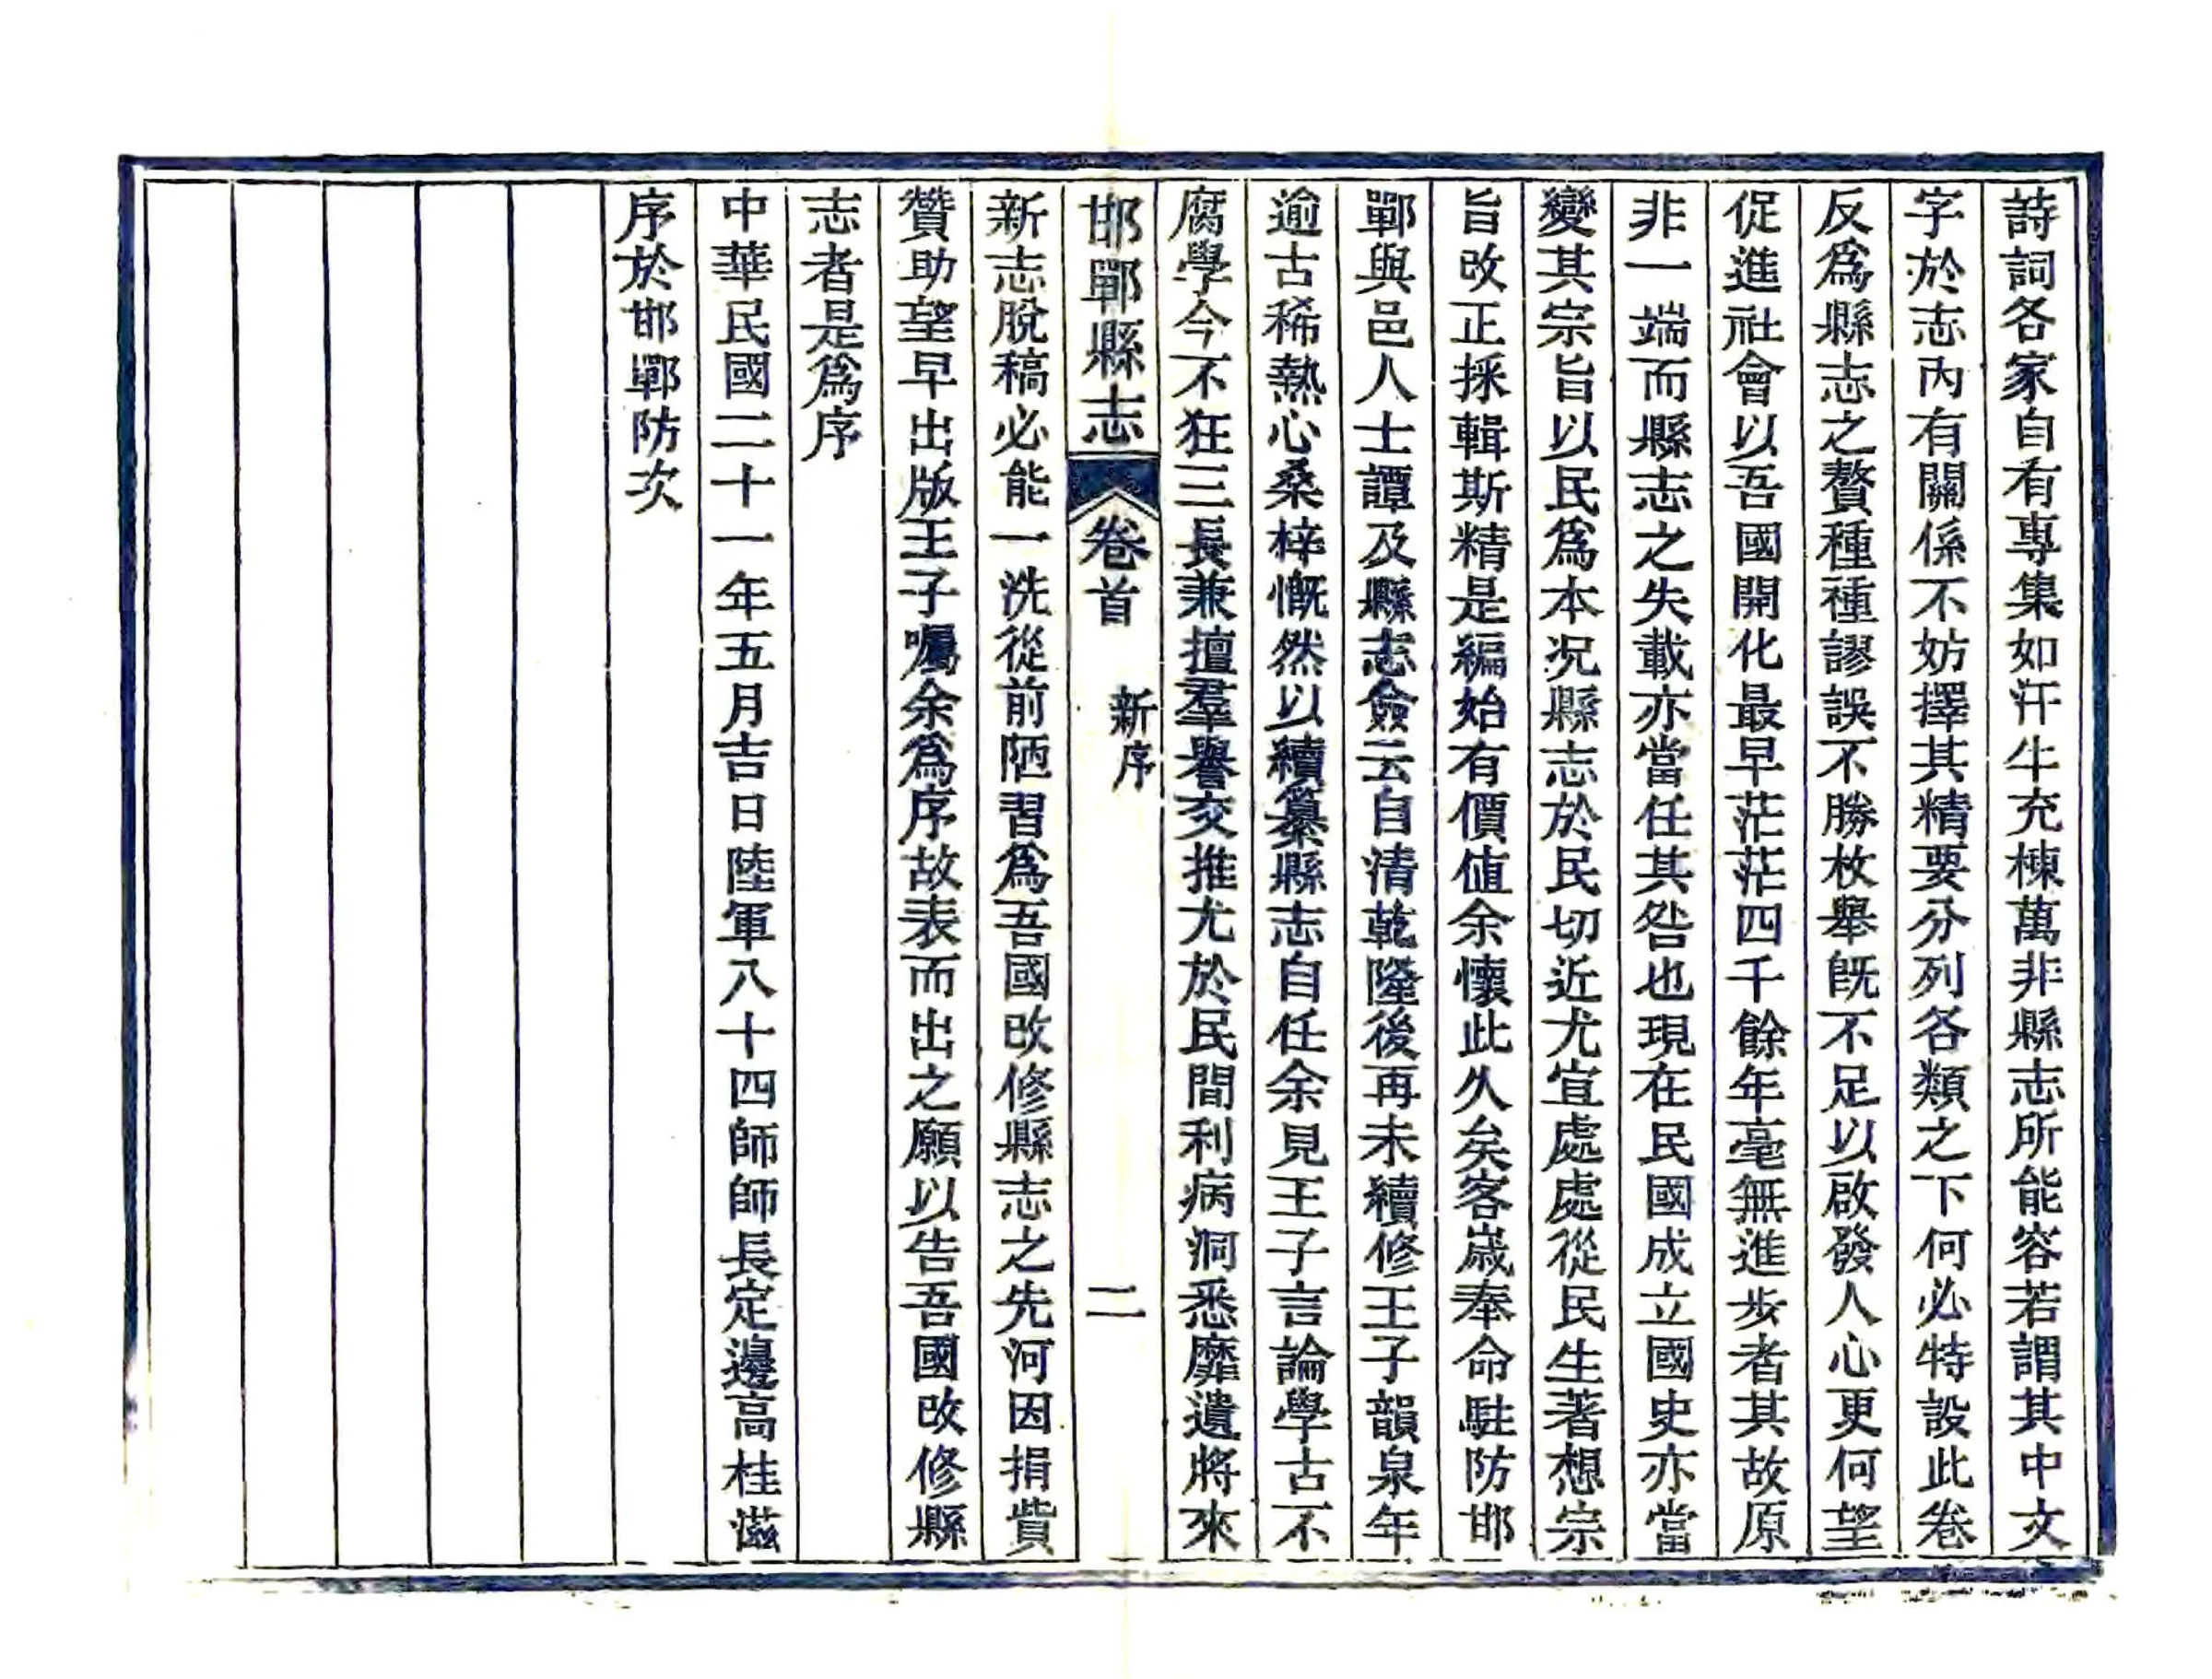 詩詞各家自有專集如汗牛充棟萬非縣志所能容若謂其中文
字於志內有關係不妨擇其精要分列各類之下何必特設此卷
反爲縣志之贅種種謬誤不勝枚舉既不足以啟發人心更何望
促進社會以吾國開化最早茫茫四千餘年毫無進步者其故原
非一端而縣志之失載亦當任其咎也現在民國成立國史亦當
變其宗旨以民爲本况縣志於民切近尤宜處處從民生著想宗
旨改正採輯斯精是編始有價值余懷此久矣客歲奉命駐防邯
鄲與邑人士譚及縣志僉云自清乾隆後再未續修王子韻泉年
逾古稀熱心桑梓慨然以續纂縣志自任余見王子言論學古不
腐學今不狂三長兼擅羣譽交推尤於民間利病洞悉靡遺將來
邯鄲縣志 卷首 新序 二
新志脫稿必能一洗從前陋習爲吾國改修縣志之先河因捐貲
贊助望早出版王子囑余爲序故表而出之願以告吾國改修縣
志者是爲序
中華民國二十一年五月吉日陸軍八十四師師長定邊高桂滋
序於邯鄲防次